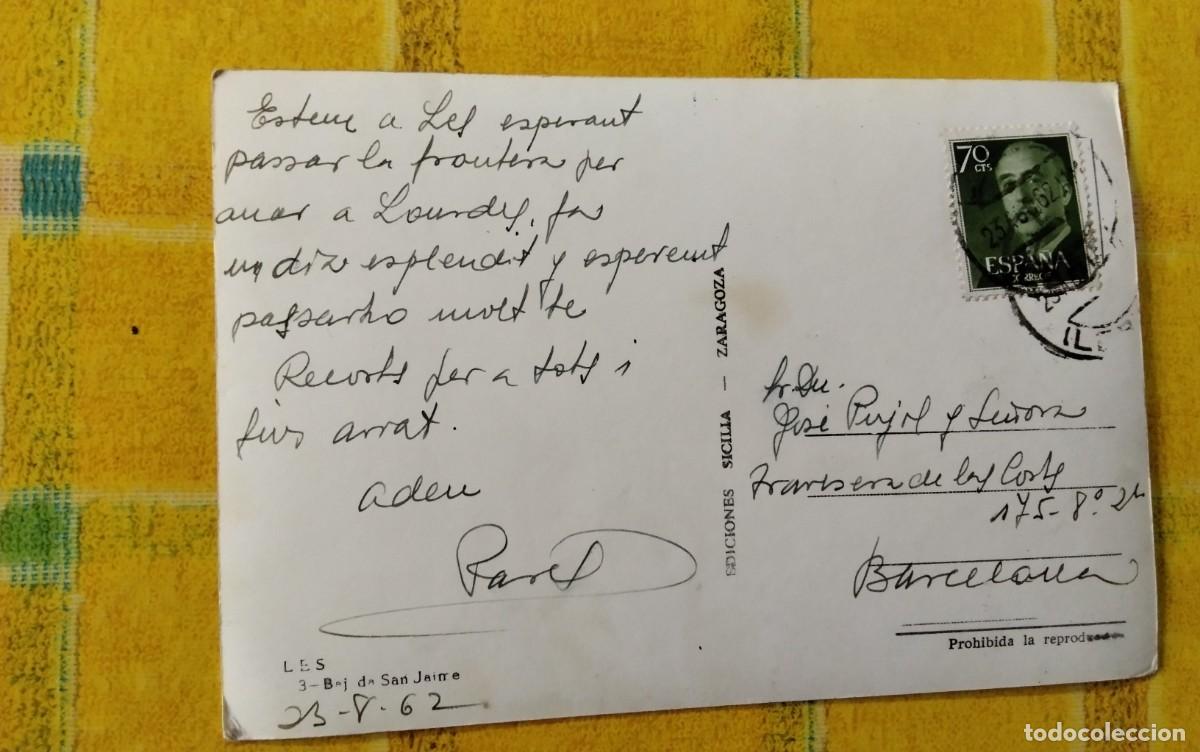 Estem a Les esperant
passar la frontera per
anar a Lourdes, fa
un dia esplendit y esperem
passarho molt be
Records per a tots i
fins aviat.
adeu
LES
3-Baj de San Jaime
23-8-62
EDICIONES SICILIA — ZARAGOZA
70
CTS
ESPAÑA
CORREOS
Sr. Dn.
José Pujol y Señora
Travesera de las Corts
175-8º 2ª
Barcelona
Prohibida la reprod
todocoleccion